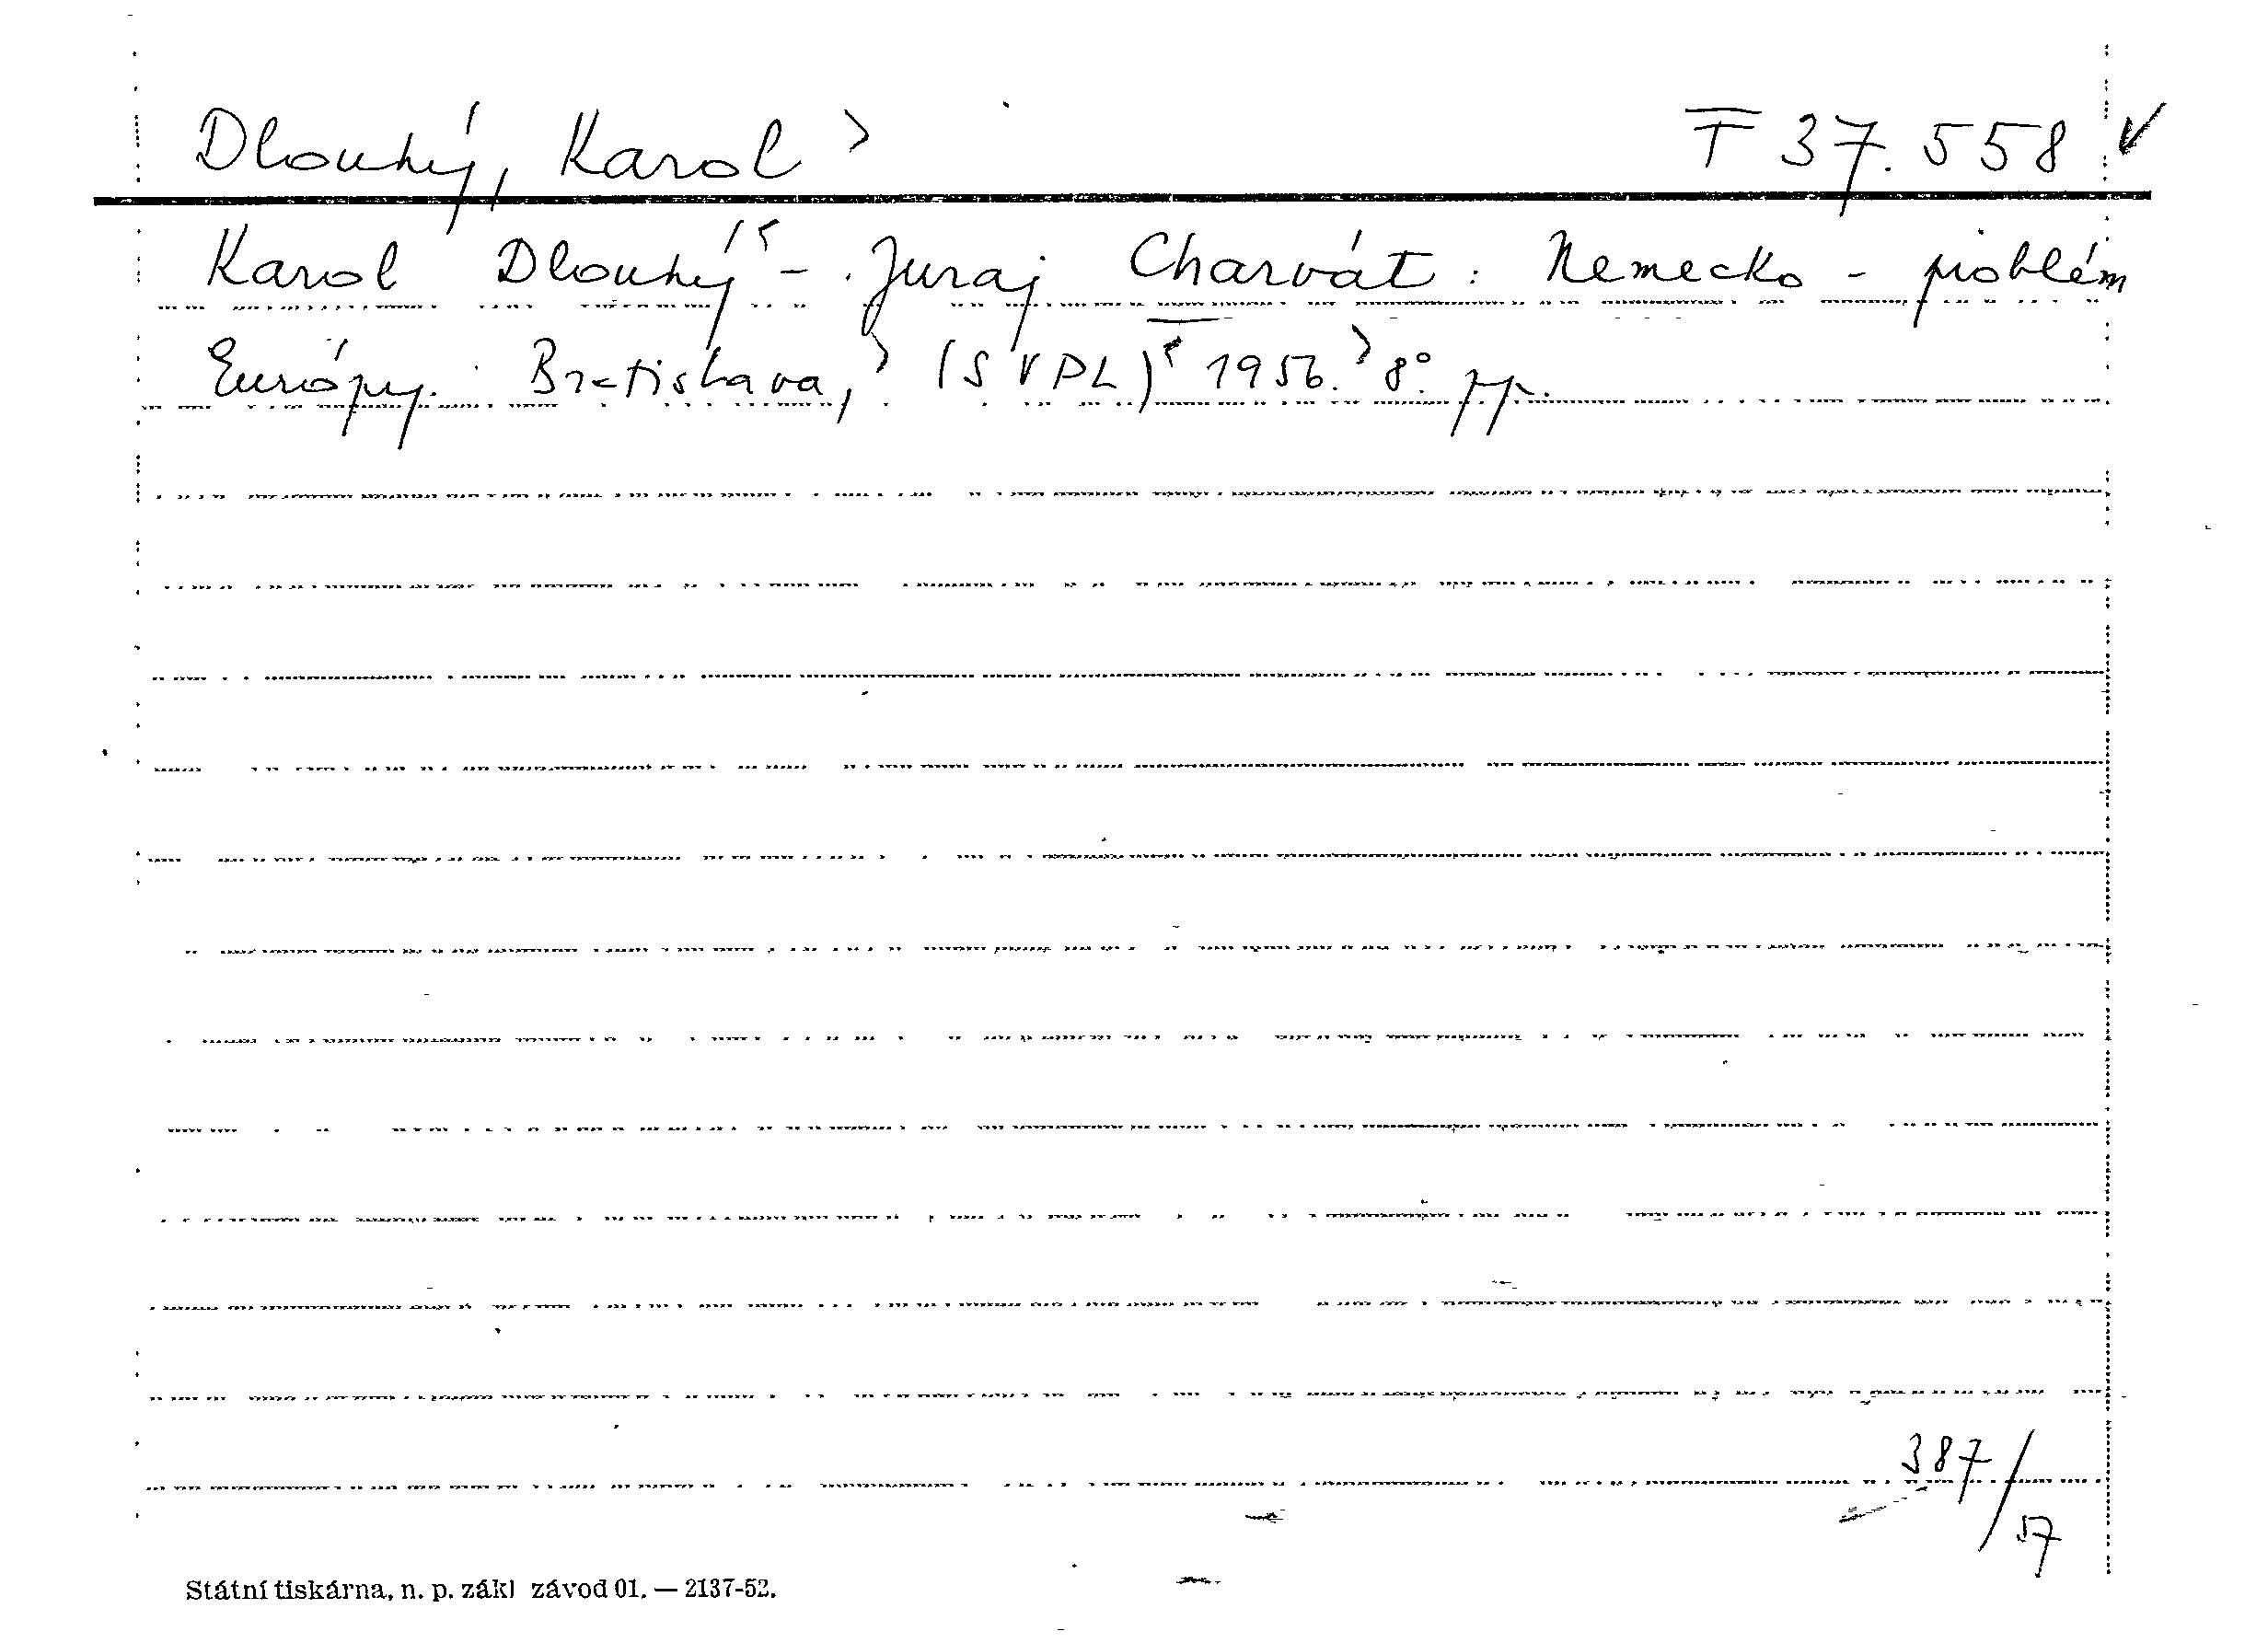 Dlouhý, Karol T 37.558
Karol Dlouhý - Juraj Charvát: Nemecko - problém
Európy. Bratislava, (SVPL) 1956. 8°. pp.
387/57
Státní tiskárna, n. p. zákl závod 01. — 2137-52.